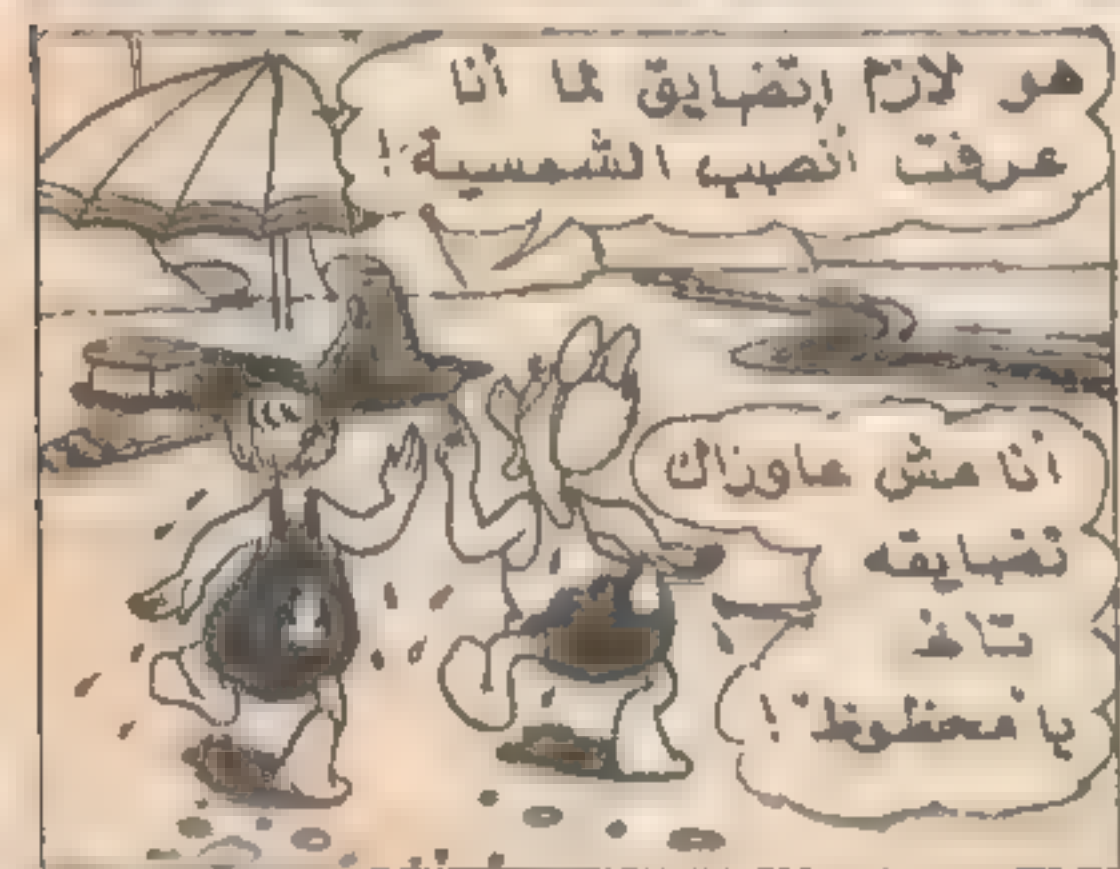 هو لازم إتضايق لما أنا
عرفت أنصب الشمسية!
أنا مش عاوزاك
تضايقه
تانى
يا "محظوظ"!